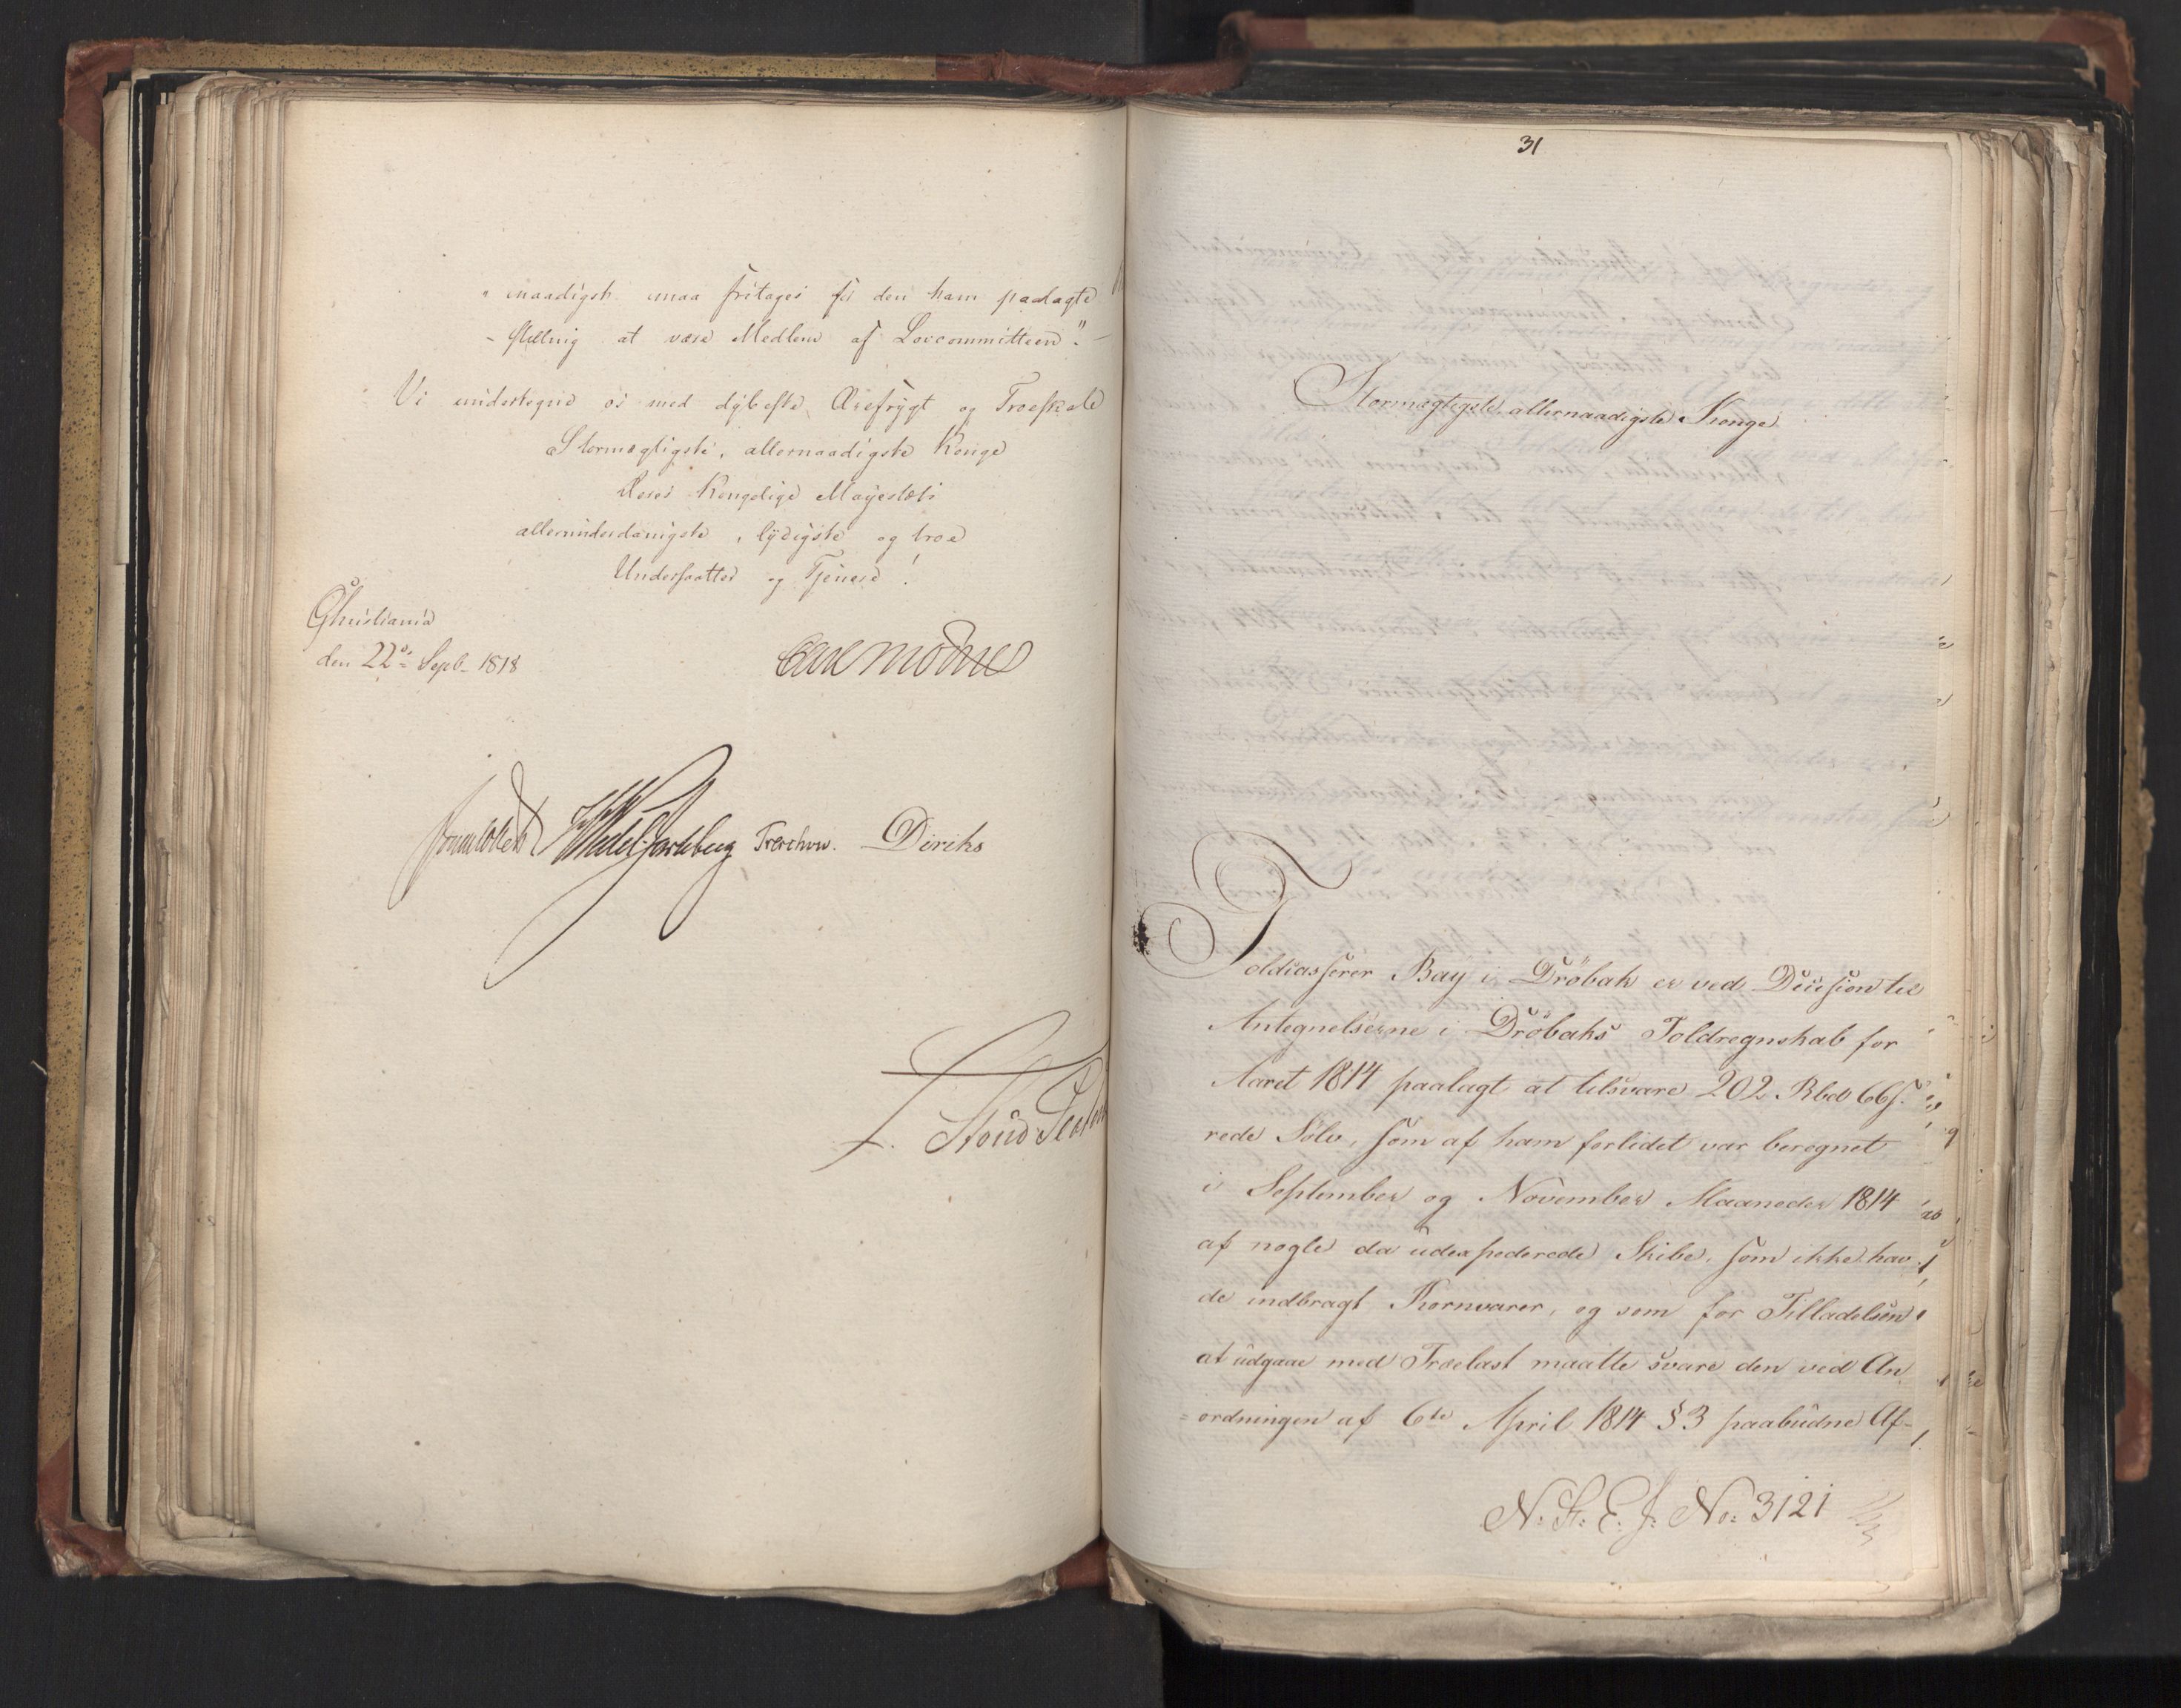 "naadigst maa fritages for den ham paalagte
- Stilling at være Medlem af Lovcommitteen". -
Vi undertegne os med dybeste Ærefrygt og Troeskab
Stormægtigste, allernaadigste Konge
Deres Kongelige Majestæts
allerunderdanigste, lydigste og troe
Undersaatter og Tjenere!
Christiania
den 22de Sept. 1818
Carl Mörner
Sommerhielm HWedel Jarlsberg Treschow. Diriks
31
Stormægtigste allernaadigste Konge
Toldcasserer Bay i Dröbak er ved Decision til
Antegnelserne i Dröbaks Toldregnskab for
Aaret 1814 paalagt at tilsvare 202 Rbd 66 s.
rede Sölv, som af ham forlidet var beregnet
i September og November Maaneder 1814
af nogle da udexpederede Skibe, som ikke hav
de indbragt Kornvarer, og som for Tilladelsen
at udgaae med Trælast maatte svare den ved An
=ordningen af 6te April 1814 §3 paabudne Af-
N. St. E. J. No. 3121